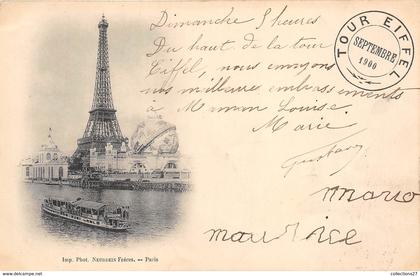 Dimanche 5 heures
Du haut de la tour
Eiffel, nous envoyons
nos meilleures embrassements
à Maman Louise.
Marie
Gustave
mario
maurice
TOUR EIFFEL
SEPTEMBRE
1900
Imp. Phot. NEURDEIN Frères. — Paris
collections27